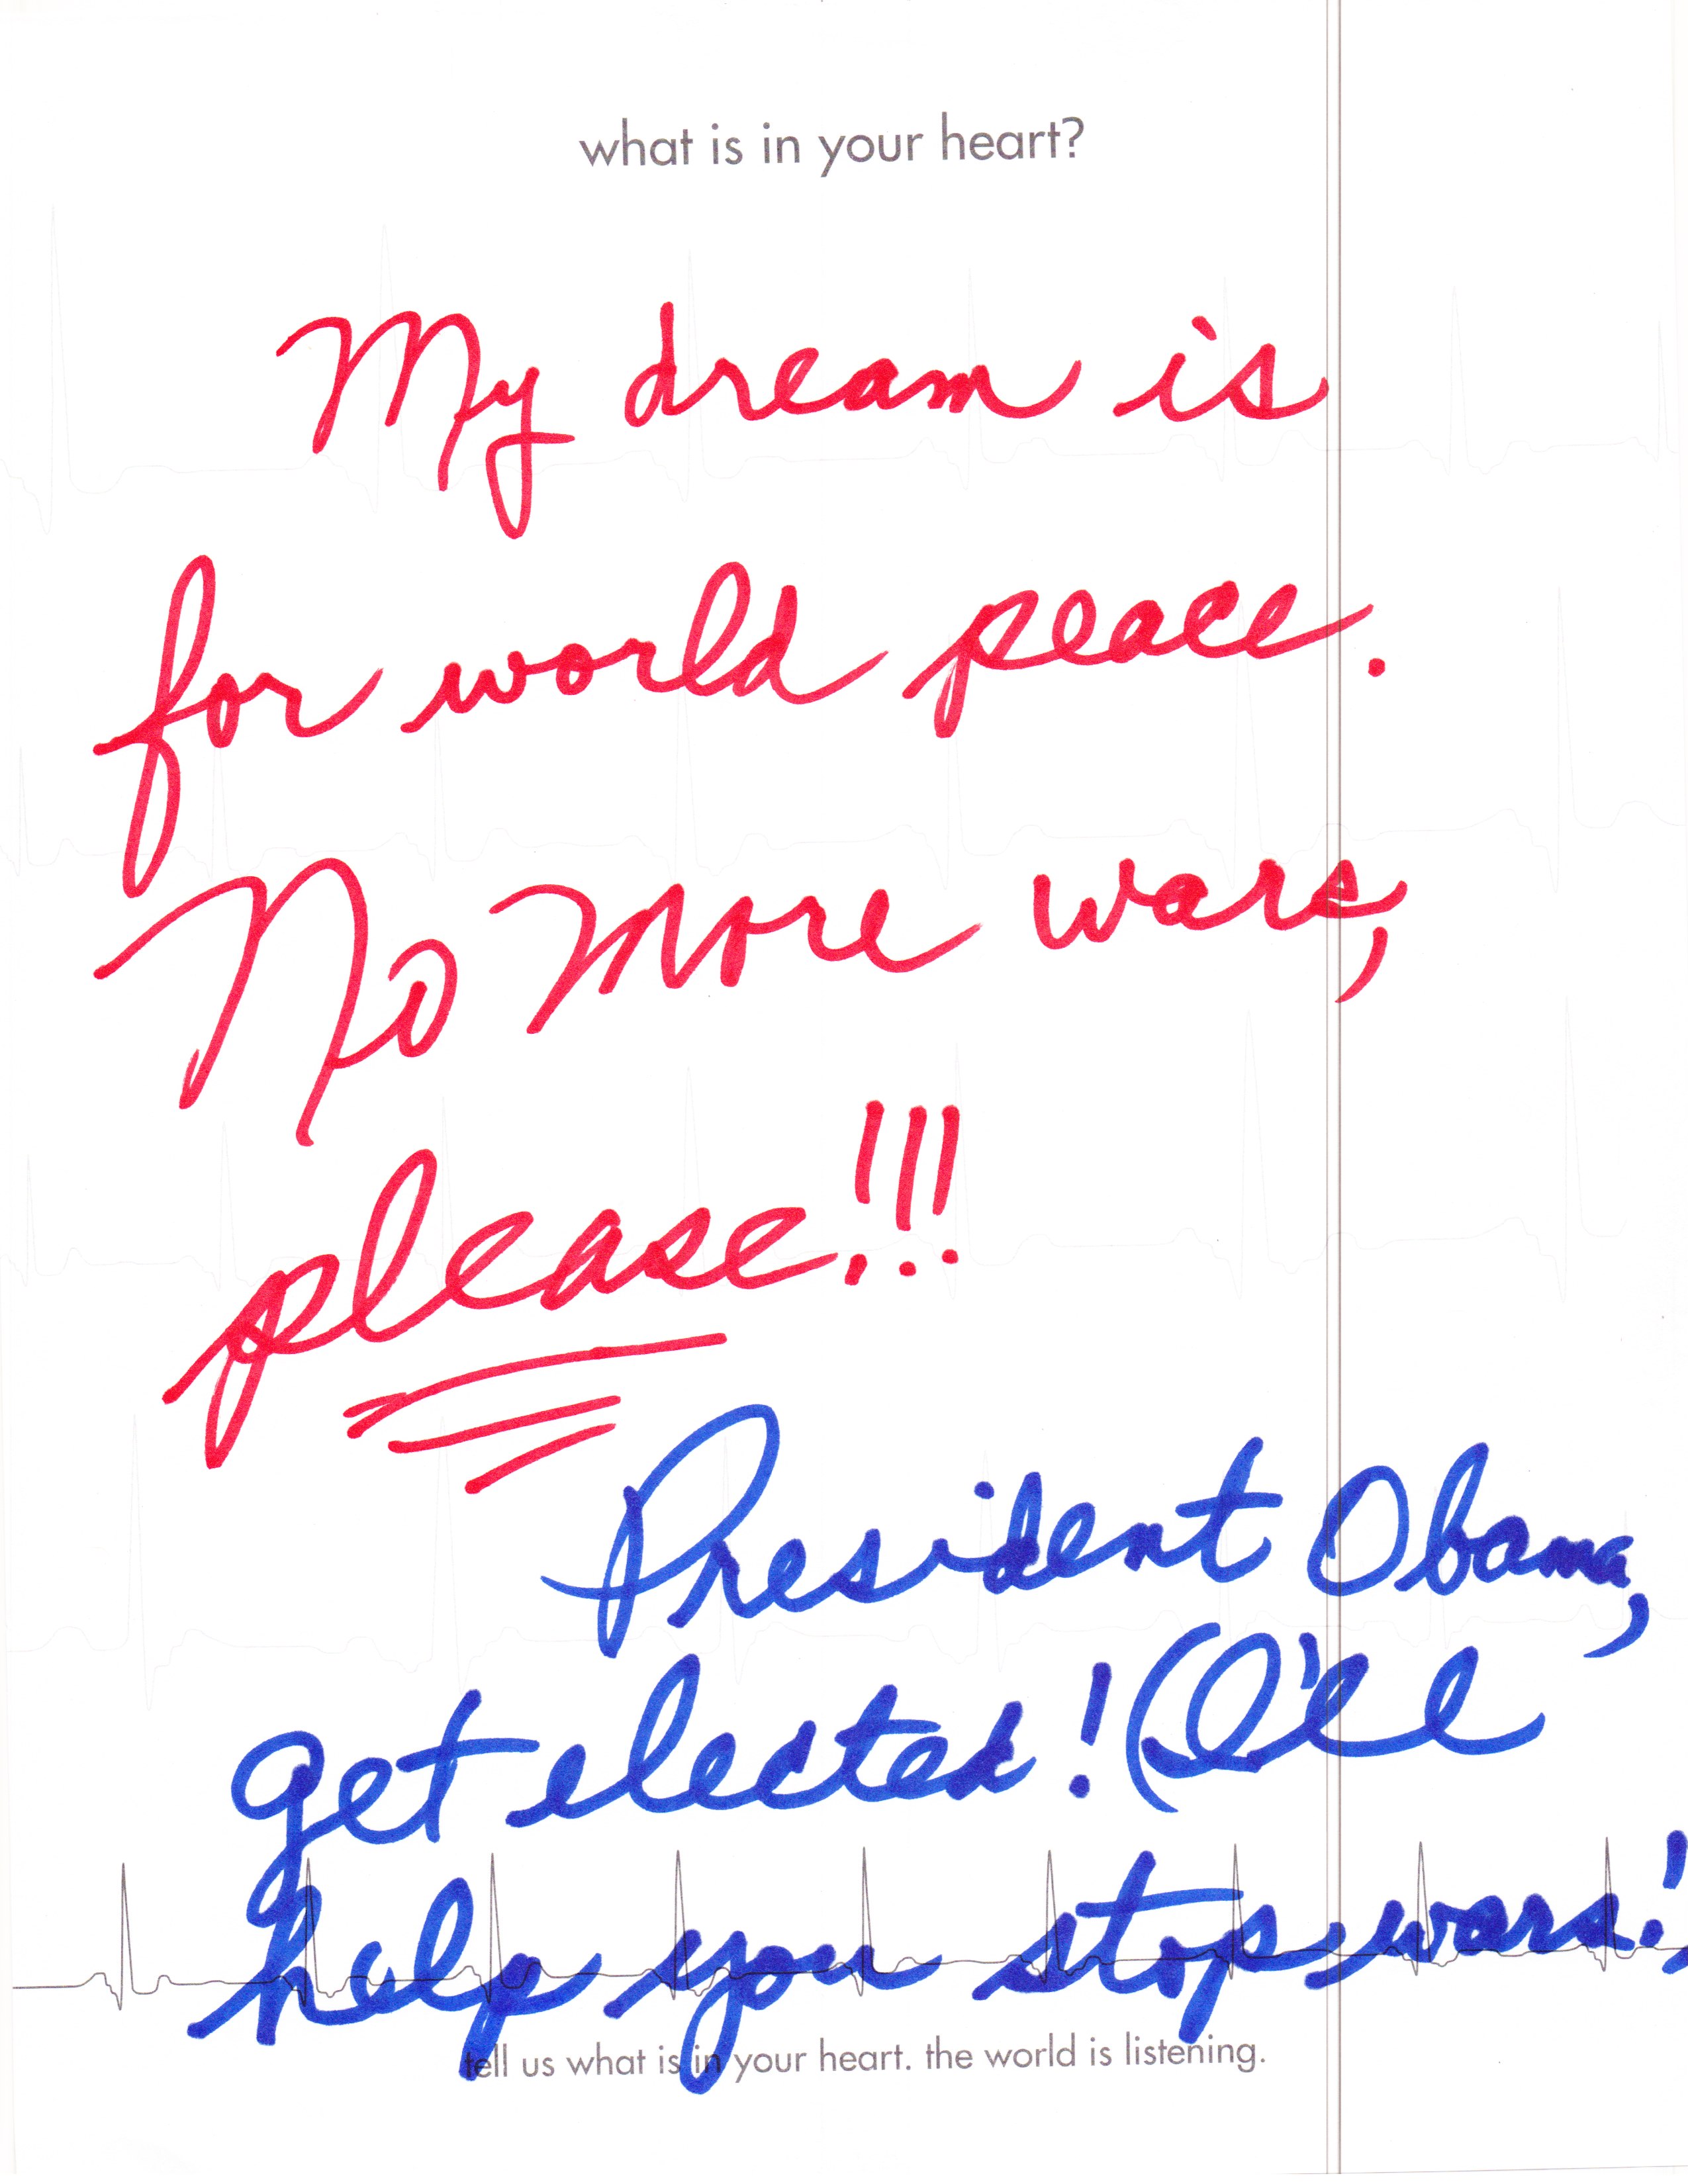 what is in your heart?
My dream is
for world peace.
No more wars,
please!!!
President Obama,
get elected! (I'll
help you stop wars!
tell us what is in your heart. the world is listening.